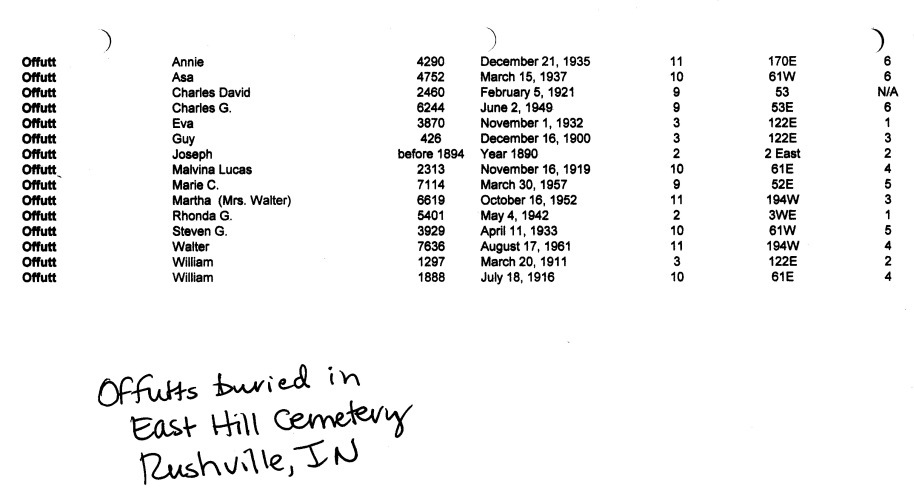 Offutt Annie 4290 December 21, 1935 11 170E 6
Offutt Asa 4752 March 15, 1937 10 61W 6
Offutt Charles David 2460 February 5, 1921 9 53 N/A
Offutt Charles G. 6244 June 2, 1949 9 53E 6
Offutt Eva 3870 November 1, 1932 3 122E 1
Offutt Guy 426 December 16, 1900 3 122E 3
Offutt Joseph before 1894 Year 1890 2 2 East 2
Offutt Malvina Lucas 2313 November 16, 1919 10 61E 4
Offutt Marie C. 7114 March 30, 1957 9 52E 5
Offutt Martha (Mrs. Walter) 6619 October 16, 1952 11 194W 3
Offutt Rhonda G. 5401 May 4, 1942 2 3WE 1
Offutt Steven G. 3929 April 11, 1933 10 61W 5
Offutt Walter 7636 August 17, 1961 11 194W 4
Offutt William 1297 March 20, 1911 3 122E 2
Offutt William 1888 July 18, 1916 10 61E 4
Offutts buried in
East Hill Cemetery
Rushville, IN